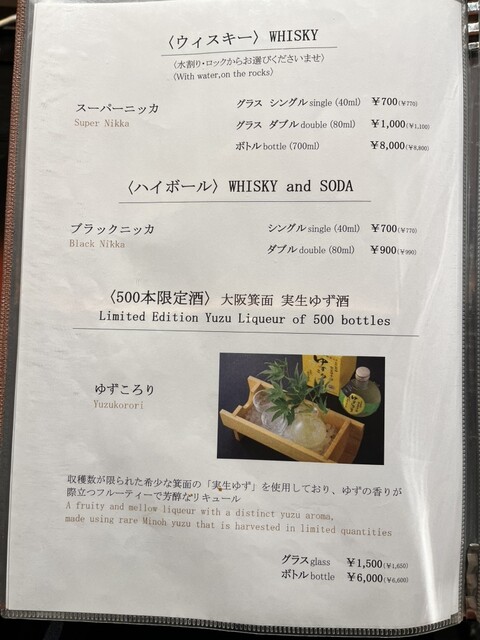 〈ウィスキー〉 WHISKY
〈水割り・ロックからお選びくださいませ〉
〈With water,on the rocks〉
スーパーニッカ グラス シングル single (40ml) ￥700(￥770)
Super Nikka グラス ダブル double (80ml) ￥1,000(￥1,100)
ボトル bottle (700ml) ￥8,000(￥8,800)
〈ハイボール〉 WHISKY and SODA
ブラックニッカ シングル single (40ml) ￥700(￥770)
Black Nikka ダブル double (80ml) ￥900(￥990)
〈500本限定酒〉 大阪箕面 実生ゆず酒
Limited Edition Yuzu Liqueur of 500 bottles
ゆずころり
Yuzukorori
収穫数が限られた希少な箕面の「実生ゆず」を使用しており、ゆずの香りが
際立つフルーティーで芳醇なリキュール
A fruity and mellow liqueur with a distinct yuzu aroma,
made using rare Minoh yuzu that is harvested in limited quantities
グラス glass ￥1,500(￥1,650)
ボトル bottle ￥6,000(￥6,600)